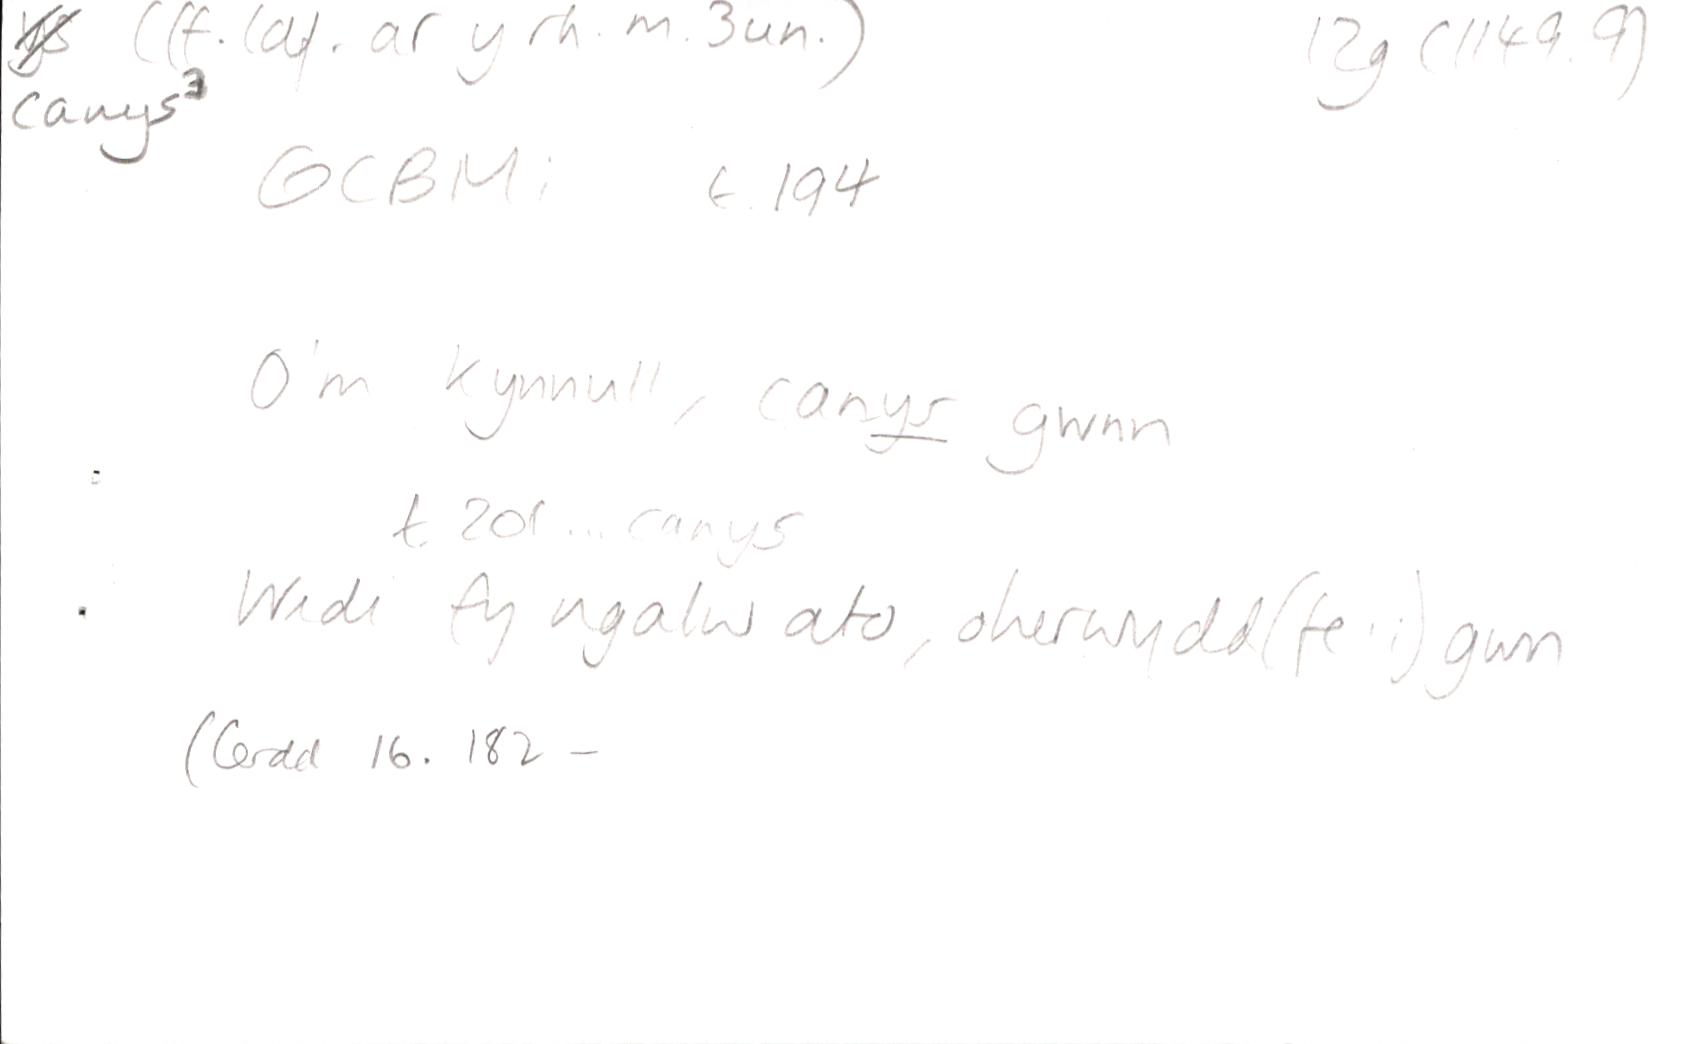 (ff. laf. ar y rh. m. 3un.) 12g (1149.9)
canys³
GCBM i t. 194
O'm kynnull, canys gwnn
t. 201 ... canys
Wedi fy ngalw ato, oherwydd (fe'i) gwn
(Cerdd 16. 182 –